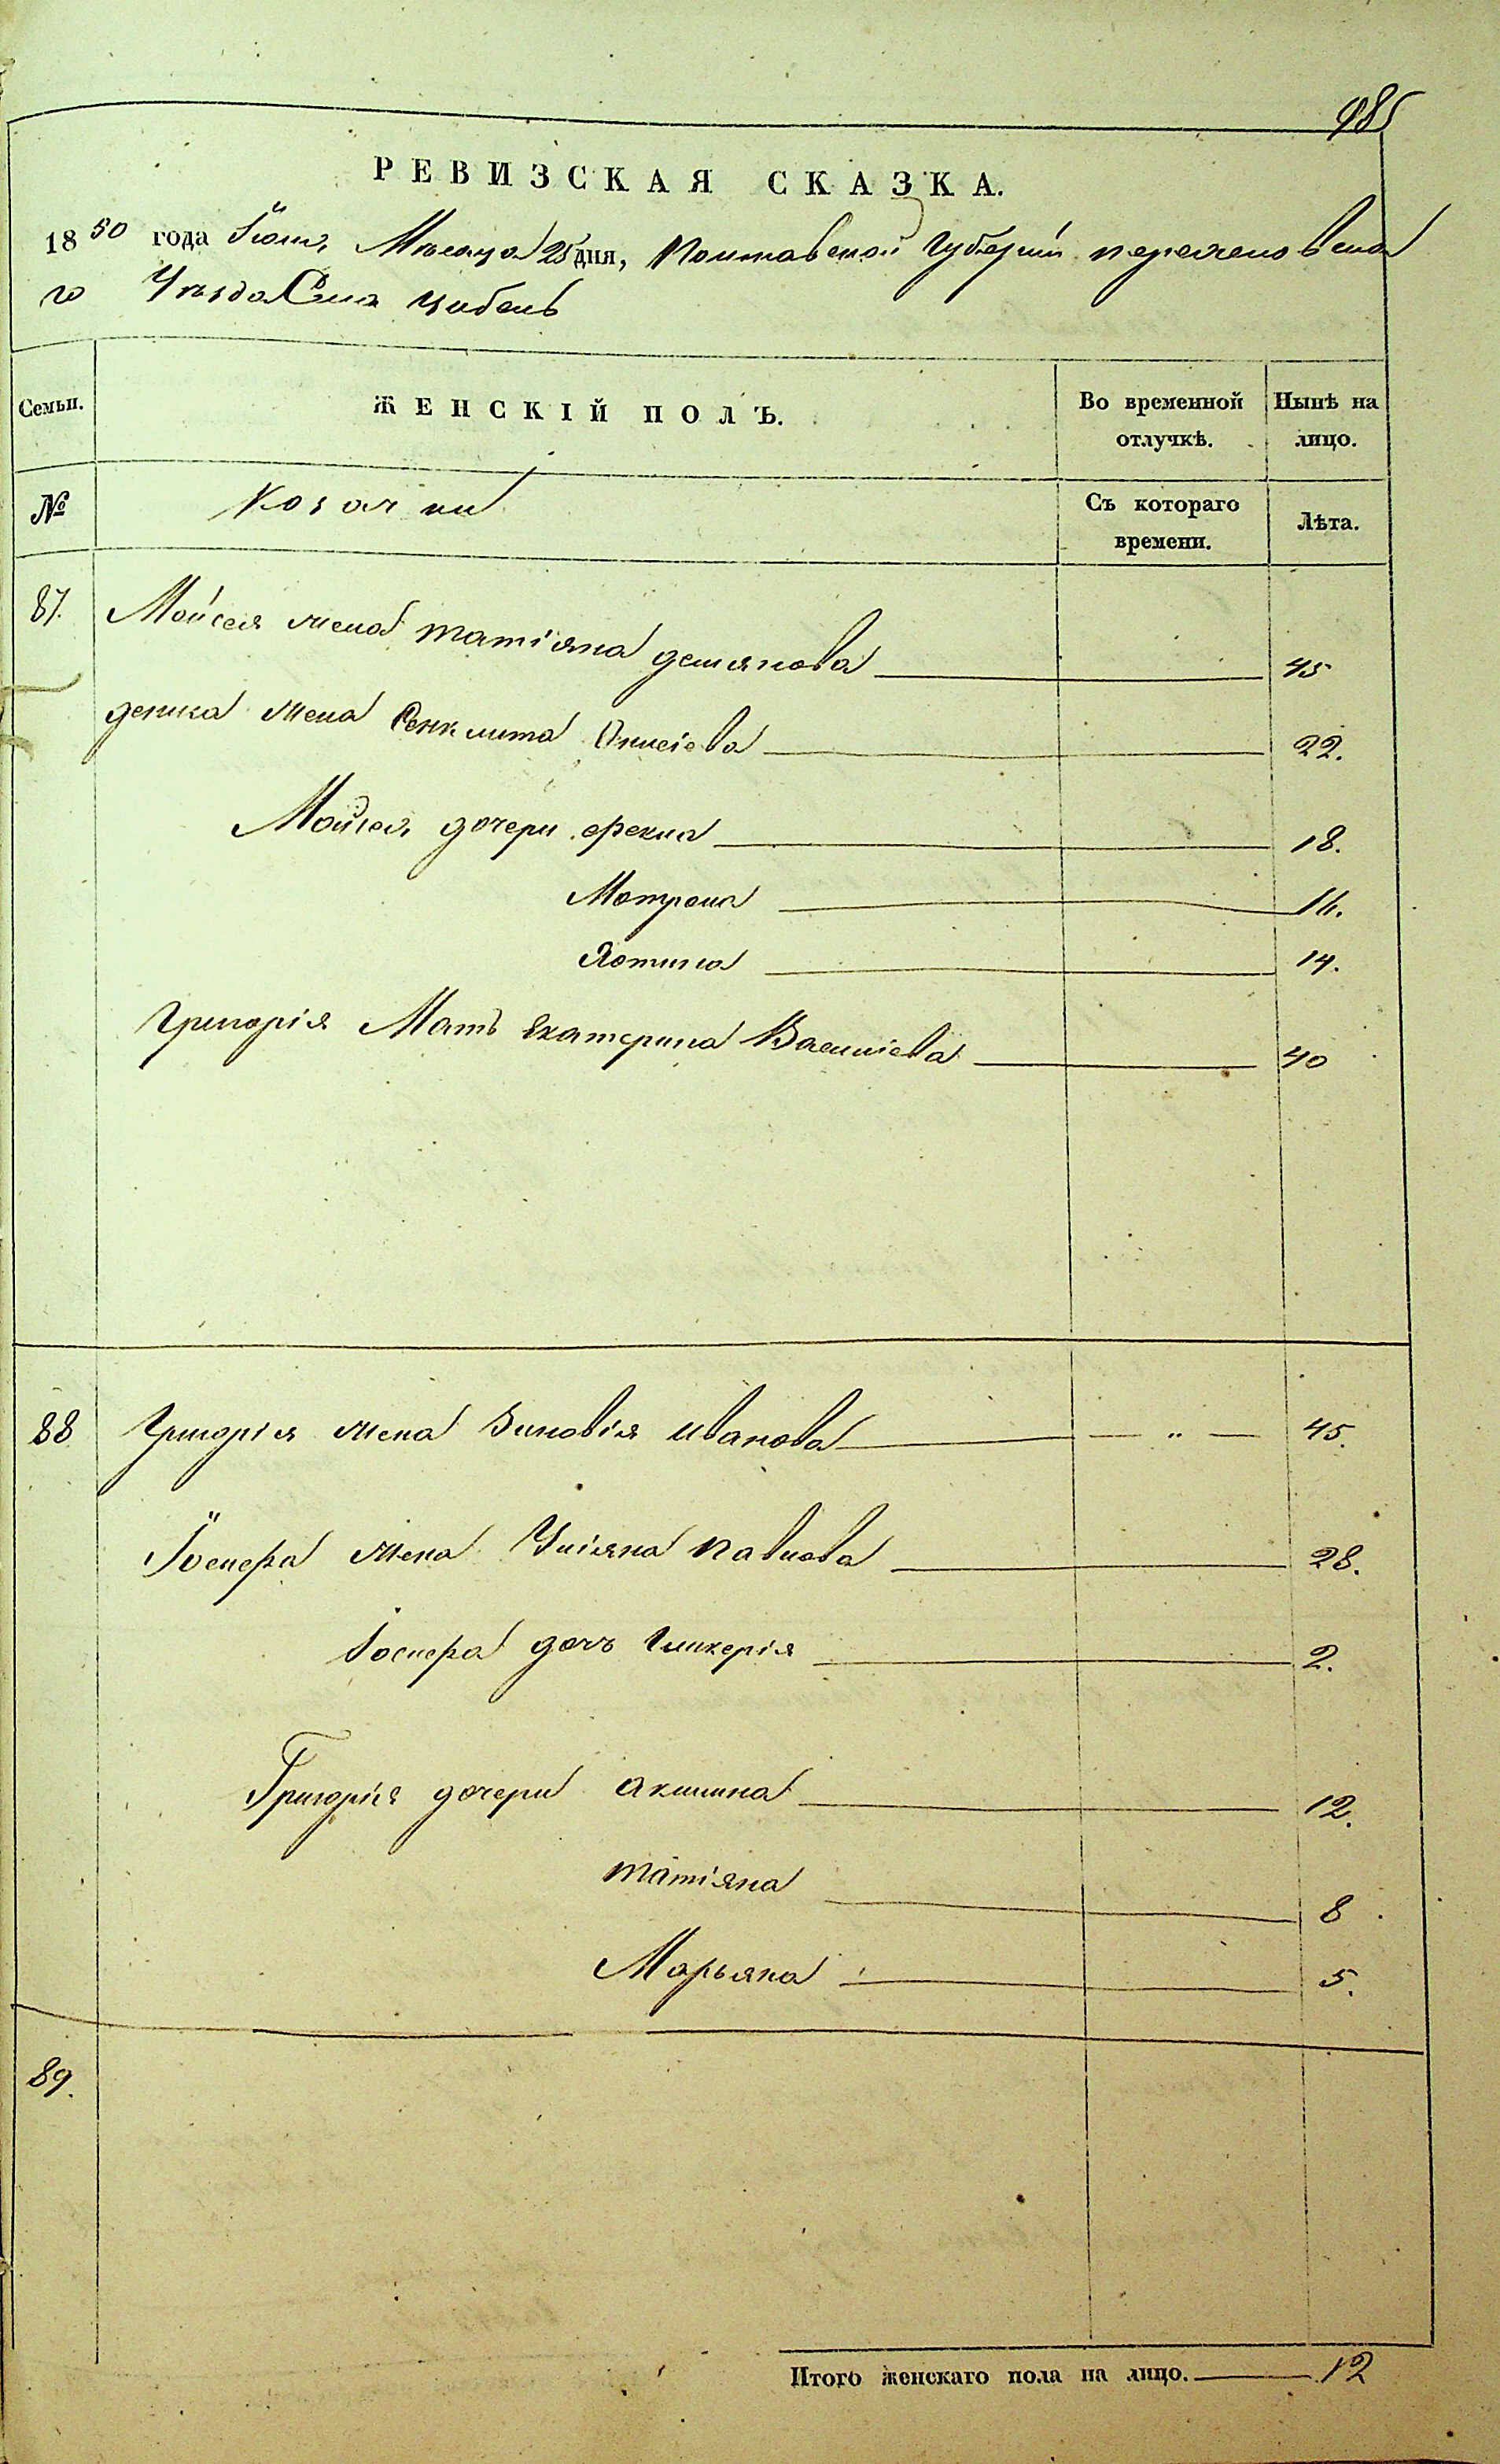 985
РЕВИЗСКАЯ СКАЗКА.
1850 года Іюня Мѣсяца 25 дня, Полтавской Губерніи переяславска
го Уѣзда Села Цибель
Семьи. ЖЕНСКІЙ ПОЛЪ. Во временной отлучкѣ. Нынѣ на лицо.
№ Козачки Съ котораго времени. Лѣта.
87. Мойсея жена татіяна демянова 45
дениса жена Сенклита 22.
Мойсея дочери фекла 18.
Мотрона 16.
Яотина 14.
Григорія Мать Екатерина Василіева 40
88 Григорія жена Зиновія иванова — „ — 45.
Іосифа жена Уліяна павлова 28.
Іосифа дочь Гликерія 2.
Григорія дочери акилина 12.
татіяна 8
Марьяна 5.
89.
Итого женскаго пола на лицо. 12